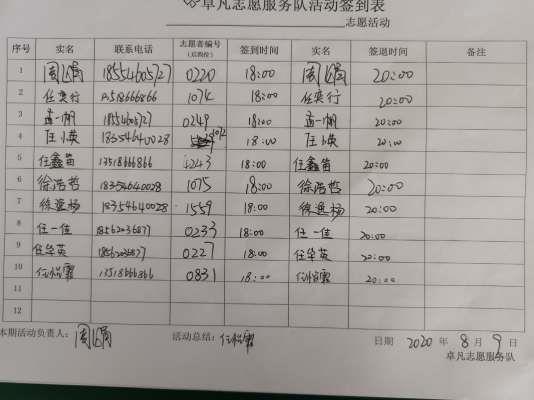 卓凡志愿服务队活动签到表
志愿活动
序号 实名 联系电话 志愿者编号(后四位) 签到时间 实名 签退时间 备注
1 周 18554605727 0220 18:00 周 20:00
2 任奕行 13518666866 1074 18:00 任奕行 20:00
3 孟一帆 18554605727 0249 18:00 孟一帆 20:00
4 任小英 18354640028 1072 18:00 任小英 20:00
5 任鑫苗 13518666866 1243 18:00 任鑫苗 20:00
6 徐浩哲 18354640028 1075 18:00 徐浩哲 20:00
7 徐逸杨 18354640028 1559 18:00 徐逸杨 20:00
8 任一佳 18562036877 0233 18:00 任一佳 20:00
9 任华英 18562036877 0227 18:00 任华英 20:00
10 任怡霏 13518666866 0831 18:00 任怡霏 20:00
11
12
本期活动负责人: 周 活动总结: 任怡霏 日期 2020 年 8 月 9 日
卓凡志愿服务队